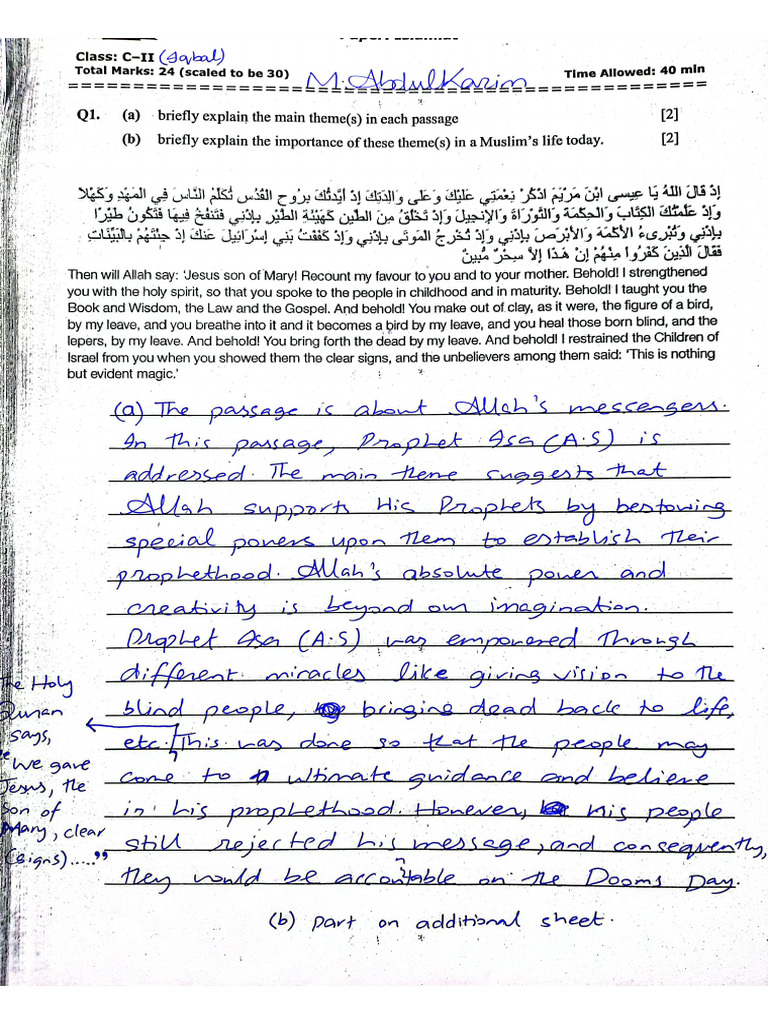 Class: C–II (Iqbal)
Total Marks: 24 (scaled to be 30) M. Abdul Karim Time Allowed: 40 min
Q1. (a) briefly explain the main theme(s) in each passage [2]
(b) briefly explain the importance of these theme(s) in a Muslim's life today. [2]
إِذْ قَالَ اللهُ يَا عِيسى ابْنَ مَرْيَمَ اذْكُرْ نِعْمَتِي عَلَيْكَ وَعَلَى وَالِدَتِكَ إِذْ أَيَّدتُّكَ بِرُوحِ الْقُدُسِ تُكَلِّمُ النَّاسَ فِي الْمَهْدِ وَكَهْلًا
وَإِذْ عَلَّمْتُكَ الْكِتَابَ وَالْحِكْمَةَ وَالتَّوْرَاةَ وَالإِنْجِيلَ وَإِذْ تَخْلُقُ مِنَ الطِّينِ كَهَيْئَةِ الطَّيْرِ بِإِذْنِي فَتَنْفُخُ فِيهَا فَتَكُونُ طَيْرًا
بِإِذْنِي وَتُبْرِىءُ الأَكْمَهَ وَالأَبْرَصَ بِإِذْنِي وَإِذْ تُخْرِجُ الْمَوتَى بِإِذْنِي وَإِذْ كَفَفْتُ بَنِي إِسْرَائِيلَ عَنكَ إِذْ جِئْتَهُمْ بِالْبَيِّنَاتِ
فَقَالَ الَّذِينَ كَفَرُواْ مِنْهُمْ إِنْ هَذَا إِلاَّ سِحْرٌ مُبِينٌ
Then will Allah say: 'Jesus son of Mary! Recount my favour to you and to your mother. Behold! I strengthened
you with the holy spirit, so that you spoke to the people in childhood and in maturity. Behold! I taught you the
Book and Wisdom, the Law and the Gospel. And behold! You make out of clay, as it were, the figure of a bird,
by my leave, and you breathe into it and it becomes a bird by my leave, and you heal those born blind, and the
lepers, by my leave. And behold! You bring forth the dead by my leave. And behold! I restrained the Children of
Israel from you when you showed them the clear signs, and the unbelievers among them said: 'This is nothing
but evident magic.'
(a) The passage is about Allah's messengers.
In this passage, Prophet Isa (A.S) is
addressed. The main theme suggests that
Allah supports His Prophets by bestowing
special powers upon them to establish their
prophethood. Allah's absolute power and
creativity is beyond our imagination.
Prophet Isa (A.S) was empowered through
different miracles like giving vision to the
blind people, bringing dead back to life,
etc. This was done so that the people may
come to ultimate guidance and believe
in his prophethood. However, his people
still rejected his message, and consequently,
they would be accountable on the Dooms Day.
The Holy
Quran
says,
"We gave
Jesus, the
son of
Mary, clear
(signs)....."
(b) part on additional sheet.